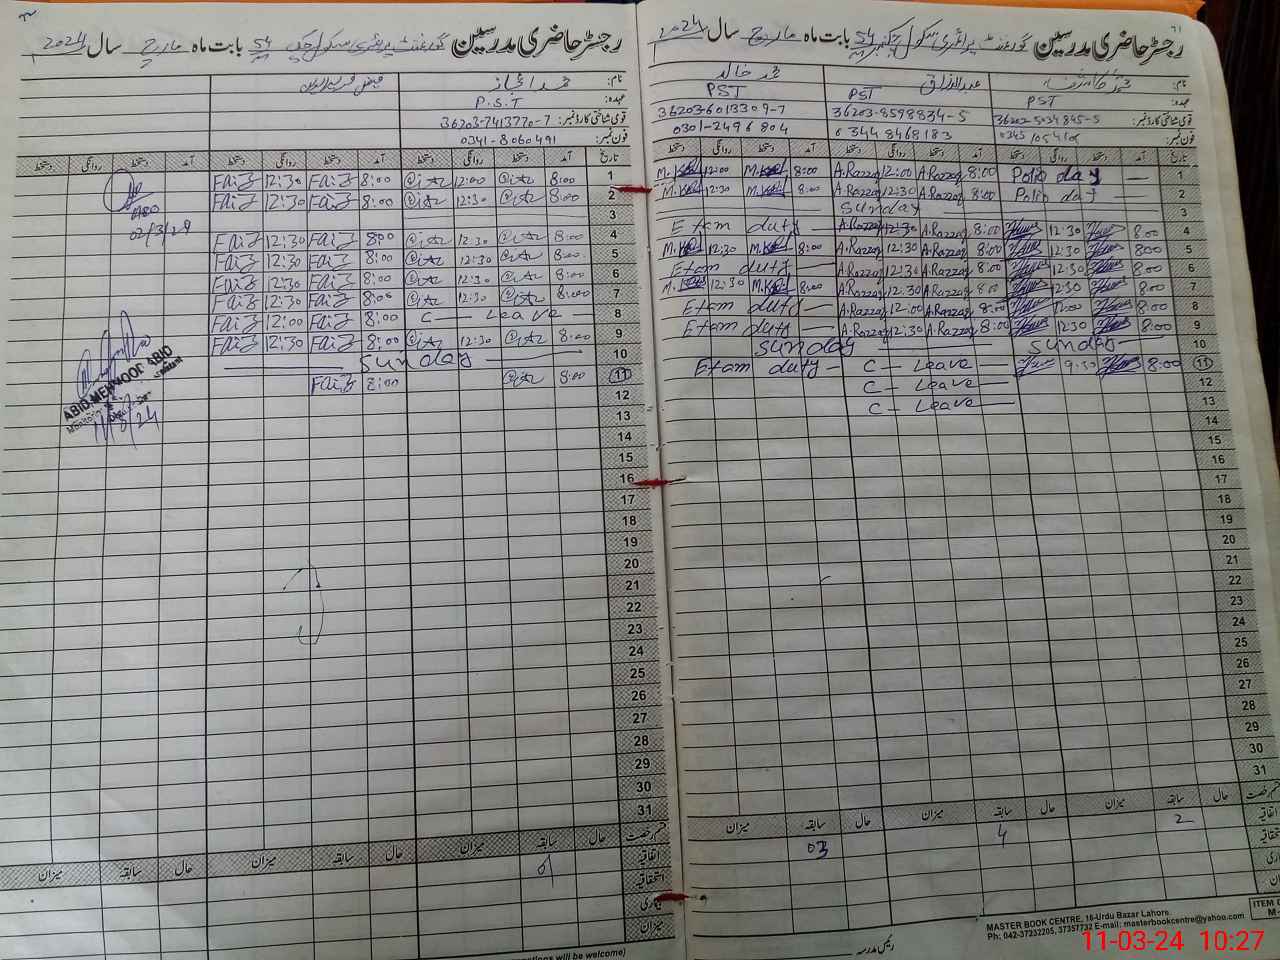 رجسٹر حاضری مدرسین گورنمنٹ پرائمری سکول چک 54 بابت ماہ مارچ سال 2024
نام: محمد اعجاز
عہدہ: P.S.T
قومی شناختی کارڈ نمبر: 36203-7413770-7
فون نمبر: 0341-8060491
تاریخ آمد دستخط روانگی دستخط آمد دستخط روانگی دستخط آمد دستخط روانگی دستخط
1 8:00 12:00 8:00 Faiz 12:30 Faiz
2 8:00 12:30 8:00 Faiz 12:30 Faiz
02/3/24
3
4 8:00 12:30 8:00 Faiz 12:30 Faiz
5 8:00 12:30 8:00 Faiz 12:30 Faiz
6 8:00 12:30 8:00 Faiz 12:30 Faiz
7 8:00 12:30 8:00 Faiz 12:30 Faiz
8 C — Leave — 8:00 Faiz 12:00 Faiz
9 8:00 12:30 8:00 Faiz 12:30 Faiz
10 Sunday
11 8:00 8:00 Faiz
ABID MEHMOOD ABID
11/3/24
12
13
14
15
16
17
18
19
20
21
22
23
24
25
26
27
28
29
30
31
قسم رخصت حال سابقہ میزان حال سابقہ میزان حال سابقہ میزان
اتفاقیہ 01
استحقاقیہ
بیماری
میزان
will be welcome)
رجسٹر حاضری مدرسین گورنمنٹ پرائمری سکول چک نمبر 54 بابت ماہ مارچ سال 2024
نام: عبدالرزاق محمد خالد
عہدہ: PST PST PST
قومی شناختی کارڈ نمبر: 36202-5034845-5 36203-8598834-5 36203-6013309-7
فون نمبر: 0344 8468183 0301-2496804
تاریخ آمد دستخط روانگی دستخط آمد دستخط روانگی دستخط آمد دستخط روانگی دستخط
1 Polio day — 8:00 A.Razzaq 12:00 A.Razzaq 8:00 12:00
2 Polio day — 8:00 A.Razzaq 12:30 A.Razzaq 8:00 12:30
3 Sunday
4 8:00 12:30 8:00 A.Razzaq 12:30 A.Razzaq Exam duty —
5 8:00 12:30 8:00 A.Razzaq 12:30 A.Razzaq 8:00 12:30
6 8:00 12:30 8:00 A.Razzaq 12:30 A.Razzaq Exam duty —
7 8:00 12:30 8:00 A.Razzaq 12:30 A.Razzaq 8:00 12:30
8 8:00 12:00 8:00 A.Razzaq 12:00 A.Razzaq Exam duty —
9 8:00 12:30 8:00 A.Razzaq 12:30 A.Razzaq Exam duty —
10 Sunday Sunday
11 8:00 9:30 C — Leave — Exam duty —
12 C — Leave —
13 C — Leave —
14
15
16
17
18
19
20
21
22
23
24
25
26
27
28
29
30
31
قسم رخصت حال سابقہ میزان حال سابقہ میزان حال سابقہ میزان
اتفاقیہ 2 4 03
رئیس مدرسہ
MASTER BOOK CENTRE, 16-Urdu Bazar Lahore.
Ph: 042-37232205, 37357732 E-mail: masterbookcentre@yahoo.com
11-03-24 10:27